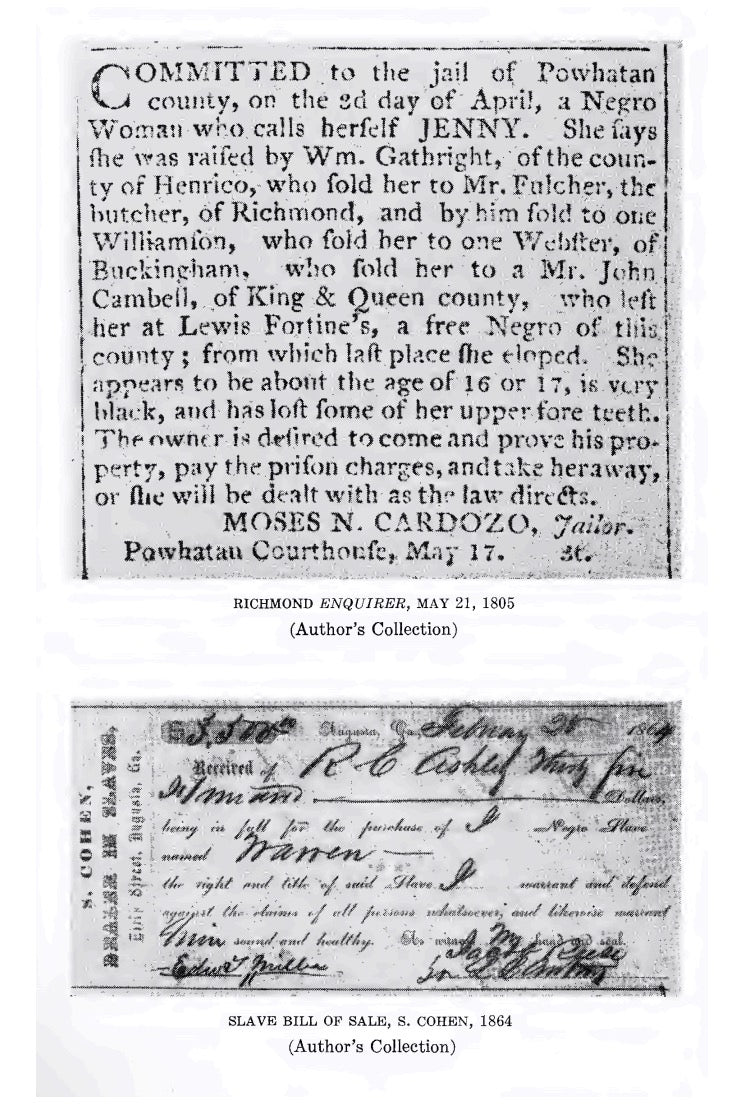 COMMITTED to the jail of Powhatan
county, on the 2d day of April, a Negro
Woman who calls herſelf JENNY. She ſays
ſhe was raiſed by Wm. Gathright, of the coun-
ty of Henrico, who ſold her to Mr. Fulcher, the
butcher, of Richmond, and by him ſold to one
Williamſon, who ſold her to one Webſter, of
Buckingham, who ſold her to a Mr. John
Cambell, of King & Queen county, who left
her at Lewis Fortine's, a free Negro of this
county; from which laſt place ſhe eloped. She
appears to be about the age of 16 or 17, is very
black, and has loſt ſome of her upper fore teeth.
The owner is deſired to come and prove his pro-
perty, pay the priſon charges, and take her away,
or ſhe will be dealt with as the law directs.
MOSES N. CARDOZO, Jailor.
Powhatan Courthouſe, May 17. 3t.
RICHMOND ENQUIRER, MAY 21, 1805
(Author's Collection)
S. COHEN,
DEALER IN SLAVES,
Ellis Street, Augusta, Ga.
Augusta, Ga. 1864
Received of R C Ashley Thirty five
Dollars,
being in full for the purchase of I Negro Slave
named Warren
the right and title of said Slave I warrant and defend
against the claims of all persons whatsoever; and likewise warrant
him sound and healthy. As witness My hand and seal.
SLAVE BILL OF SALE, S. COHEN, 1864
(Author's Collection)